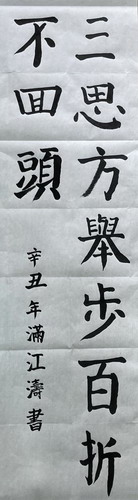 三思方舉步百折
不回頭
辛丑年滿江濤書